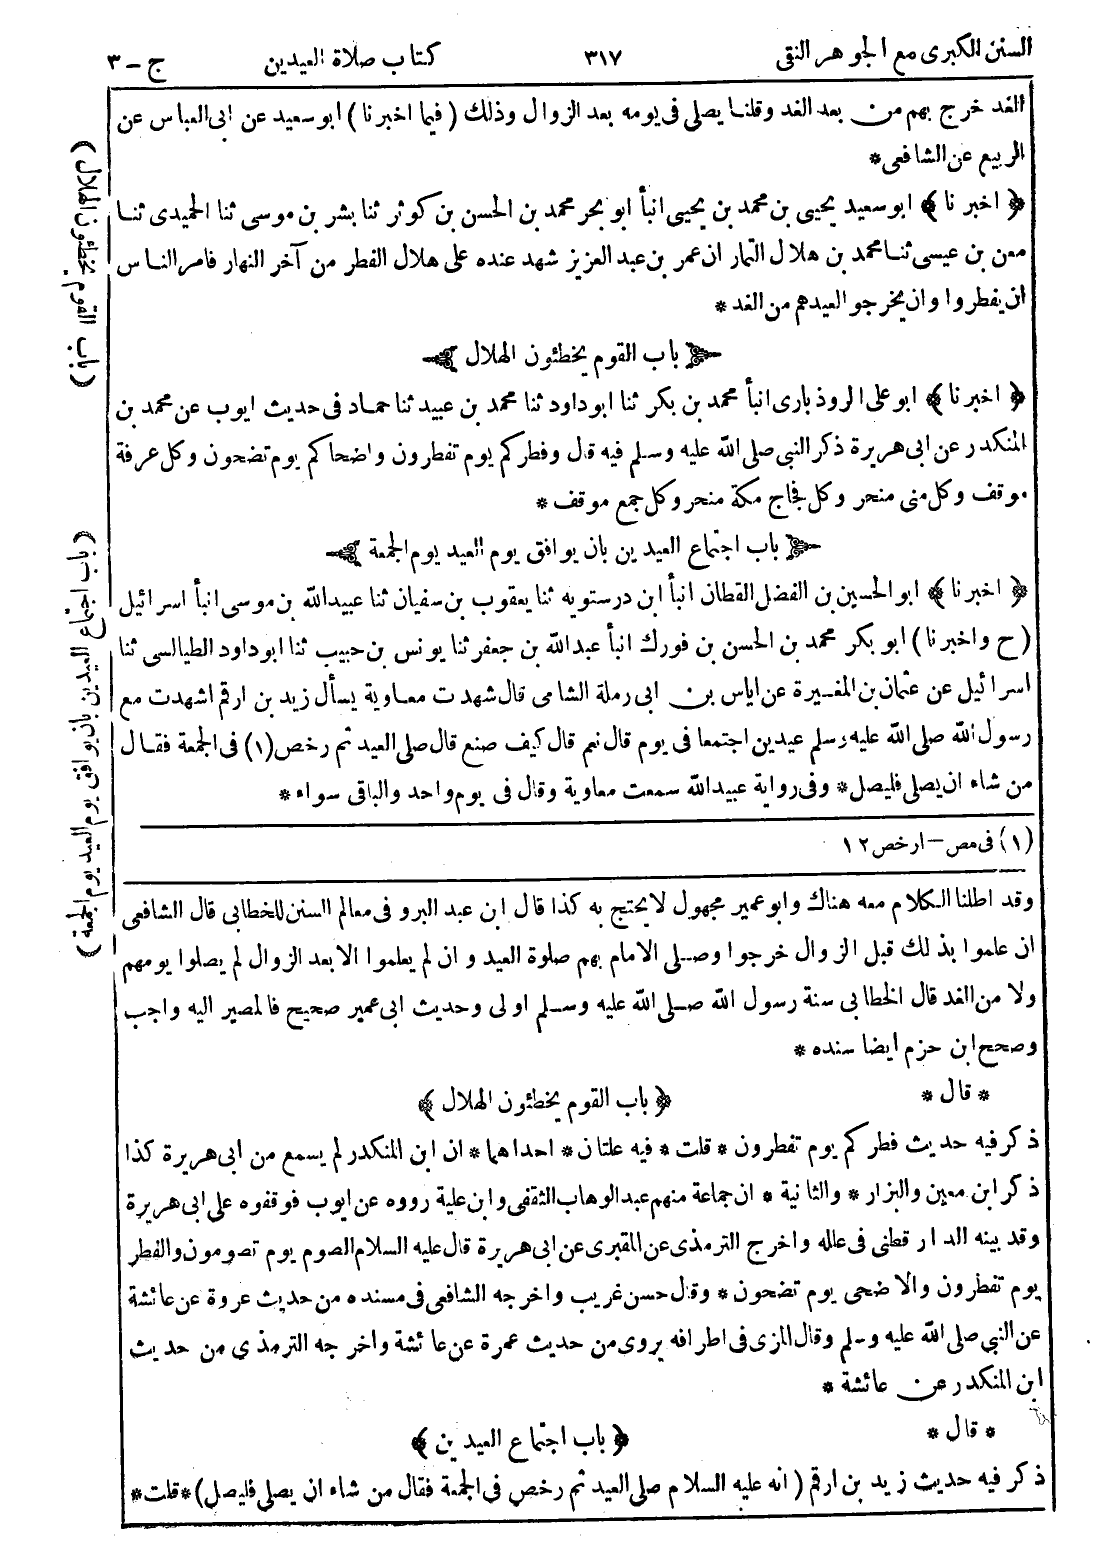 السنن الكبرى مع الجوهر النقى ٣١٧ كتاب صلاة العيدين ج - ٣
الغد خرج بهم من بعد الغد وقلنا يصلى فى يومه بعد الزوال وذلك (فيما اخبرنا) ابو سعيد عن ابى العباس عن
الربيع عن الشافعى *
﴿ اخبرنا ﴾ ابو سعيد يحيى بن محمد بن يحيى انبأ ابو بحر محمد بن الحسن بن كوثر ثنا بشر بن موسى ثنا الحميدى ثنا
معن بن عيسى ثنا محمد بن هلال التمار ان عمر بن عبد العزيز شهد عنده على هلال الفطر من آخر النهار فامر الناس
ان يفطروا وان يخرجوا لعيدهم من الغد *
باب القوم يخطئون الهلال
﴿ اخبرنا ﴾ ابو على الروذبارى انبأ محمد بن بكر ثنا ابو داود ثنا محمد بن عبيد ثنا حماد فى حديث ايوب عن محمد بن
المنكدر عن ابى هريرة ذكر النبى صلى الله عليه وسلم فيه قال وفطركم يوم تفطرون واضحاكم يوم تضحون وكل عرفة
موقف وكل منى منحر وكل فجاج مكة منحر وكل جمع موقف *
باب اجتماع العيدين بان يوافق يوم العيد يوم الجمعة
﴿ اخبرنا ﴾ ابو الحسين بن الفضل القطان انبأ ابن درستويه ثنا يعقوب بن سفيان ثنا عبيد الله بن موسى انبأ اسرائيل
(ح واخبرنا) ابو بكر محمد بن الحسن بن فورك انبأ عبد الله بن جعفر ثنا يونس بن حبيب ثنا ابو داود الطيالسى ثنا
اسرائيل عن عثمان بن المغيرة عن اياس بن ابى رملة الشامى قال شهدت معاوية يسأل زيد بن ارقم اشهدت مع
رسول الله صلى الله عليه وسلم عيدين اجتمعا فى يوم قال نعم قال كيف صنع قال صلى العيد ثم رخص (١) فى الجمعة فقال
من شاء ان يصلى فليصل * وفى رواية عبيد الله سمعت معاوية وقال فى يوم واحد والباقى سواء *
(١) فى مص - ارخص ١٢
وقد اطلنا الكلام معه هناك وابو عمير مجهول لا يحتج به كذا قال ابن عبد البر و فى معالم السنن للخطابى قال الشافعى
ان علموا بذلك قبل الزوال خرجوا وصلى الامام بهم صلوة العيد وان لم يعلموا الا بعد الزوال لم يصلوا يومهم
ولا من الغد قال الخطابى سنة رسول الله صلى الله عليه وسلم اولى وحديث ابى عمير صحيح فالمصير اليه واجب
وصحح ابن حزم ايضا سنده *
* قال * ﴿ باب القوم يخطئون الهلال ﴾
ذكر فيه حديث فطركم يوم تفطرون * قلت * فيه علتان * احداهما * ان ابن المنكدر لم يسمع من ابى هريرة كذا
ذكر ابن معين والبزار * والثانية * ان جماعة منهم عبد الوهاب الثقفى وابن علية رووه عن ايوب فوقفوه على ابى هريرة
وقد بينه الدارقطنى فى علله واخرج الترمذى عن المقبرى عن ابى هريرة قال عليه السلام الصوم يوم تصومون والفطر
يوم تفطرون والاضحى يوم تضحون * وقال حسن غريب واخرجه الشافعى فى مسنده من حديث عروة عن عائشة
عن النبى صلى الله عليه وسلم وقال المزى فى اطرافه يروى من حديث عمرة عن عائشة واخرجه الترمذى من حديث
ابن المنكدر عن عائشة *
* قال * ﴿ باب اجتماع العيدين ﴾
ذكر فيه حديث زيد بن ارقم (انه عليه السلام صلى العيد ثم رخص فى الجمعة فقال من شاء ان يصلى فليصل) * قلت *
(باب القوم يخطئون الهلال)
(باب اجتماع العيدين بان يوافق يوم العيد يوم الجمعة)